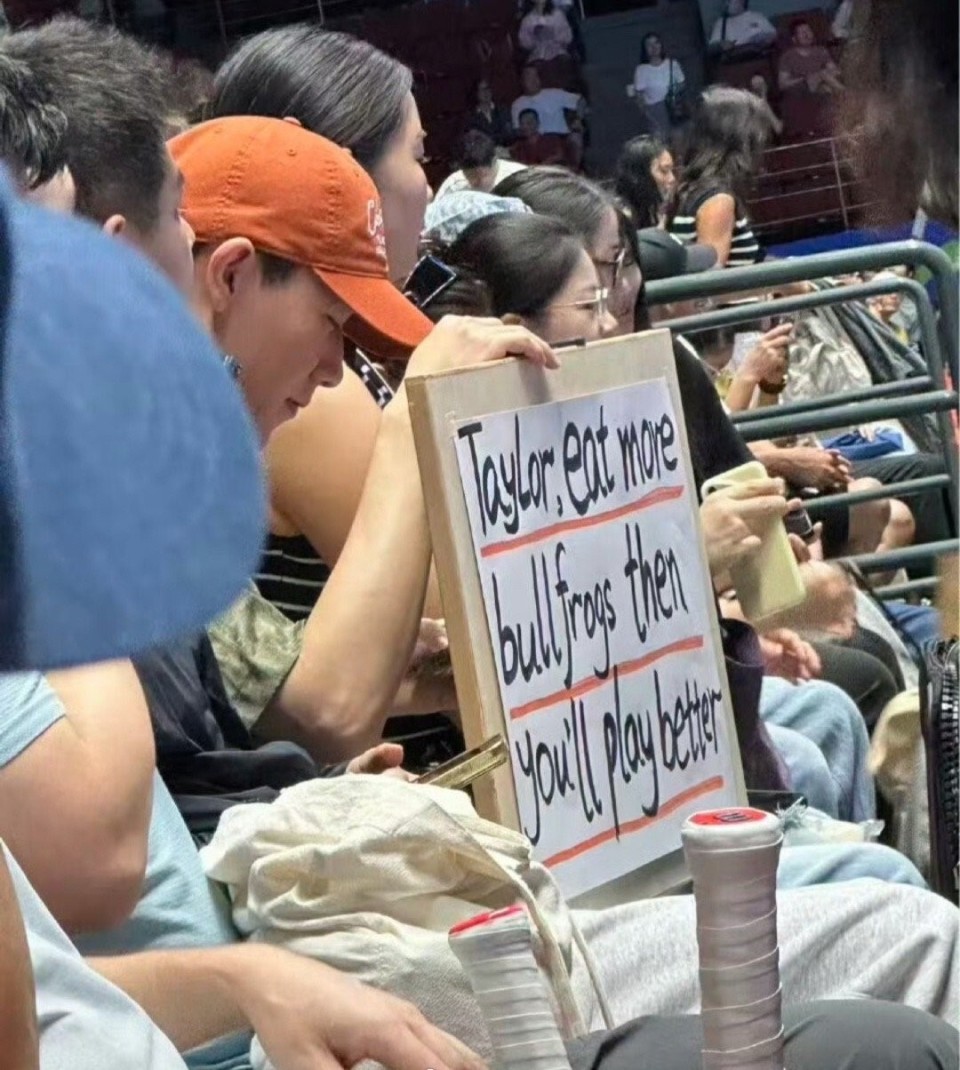 Taylor, eat more
bullfrogs then
you'll play better